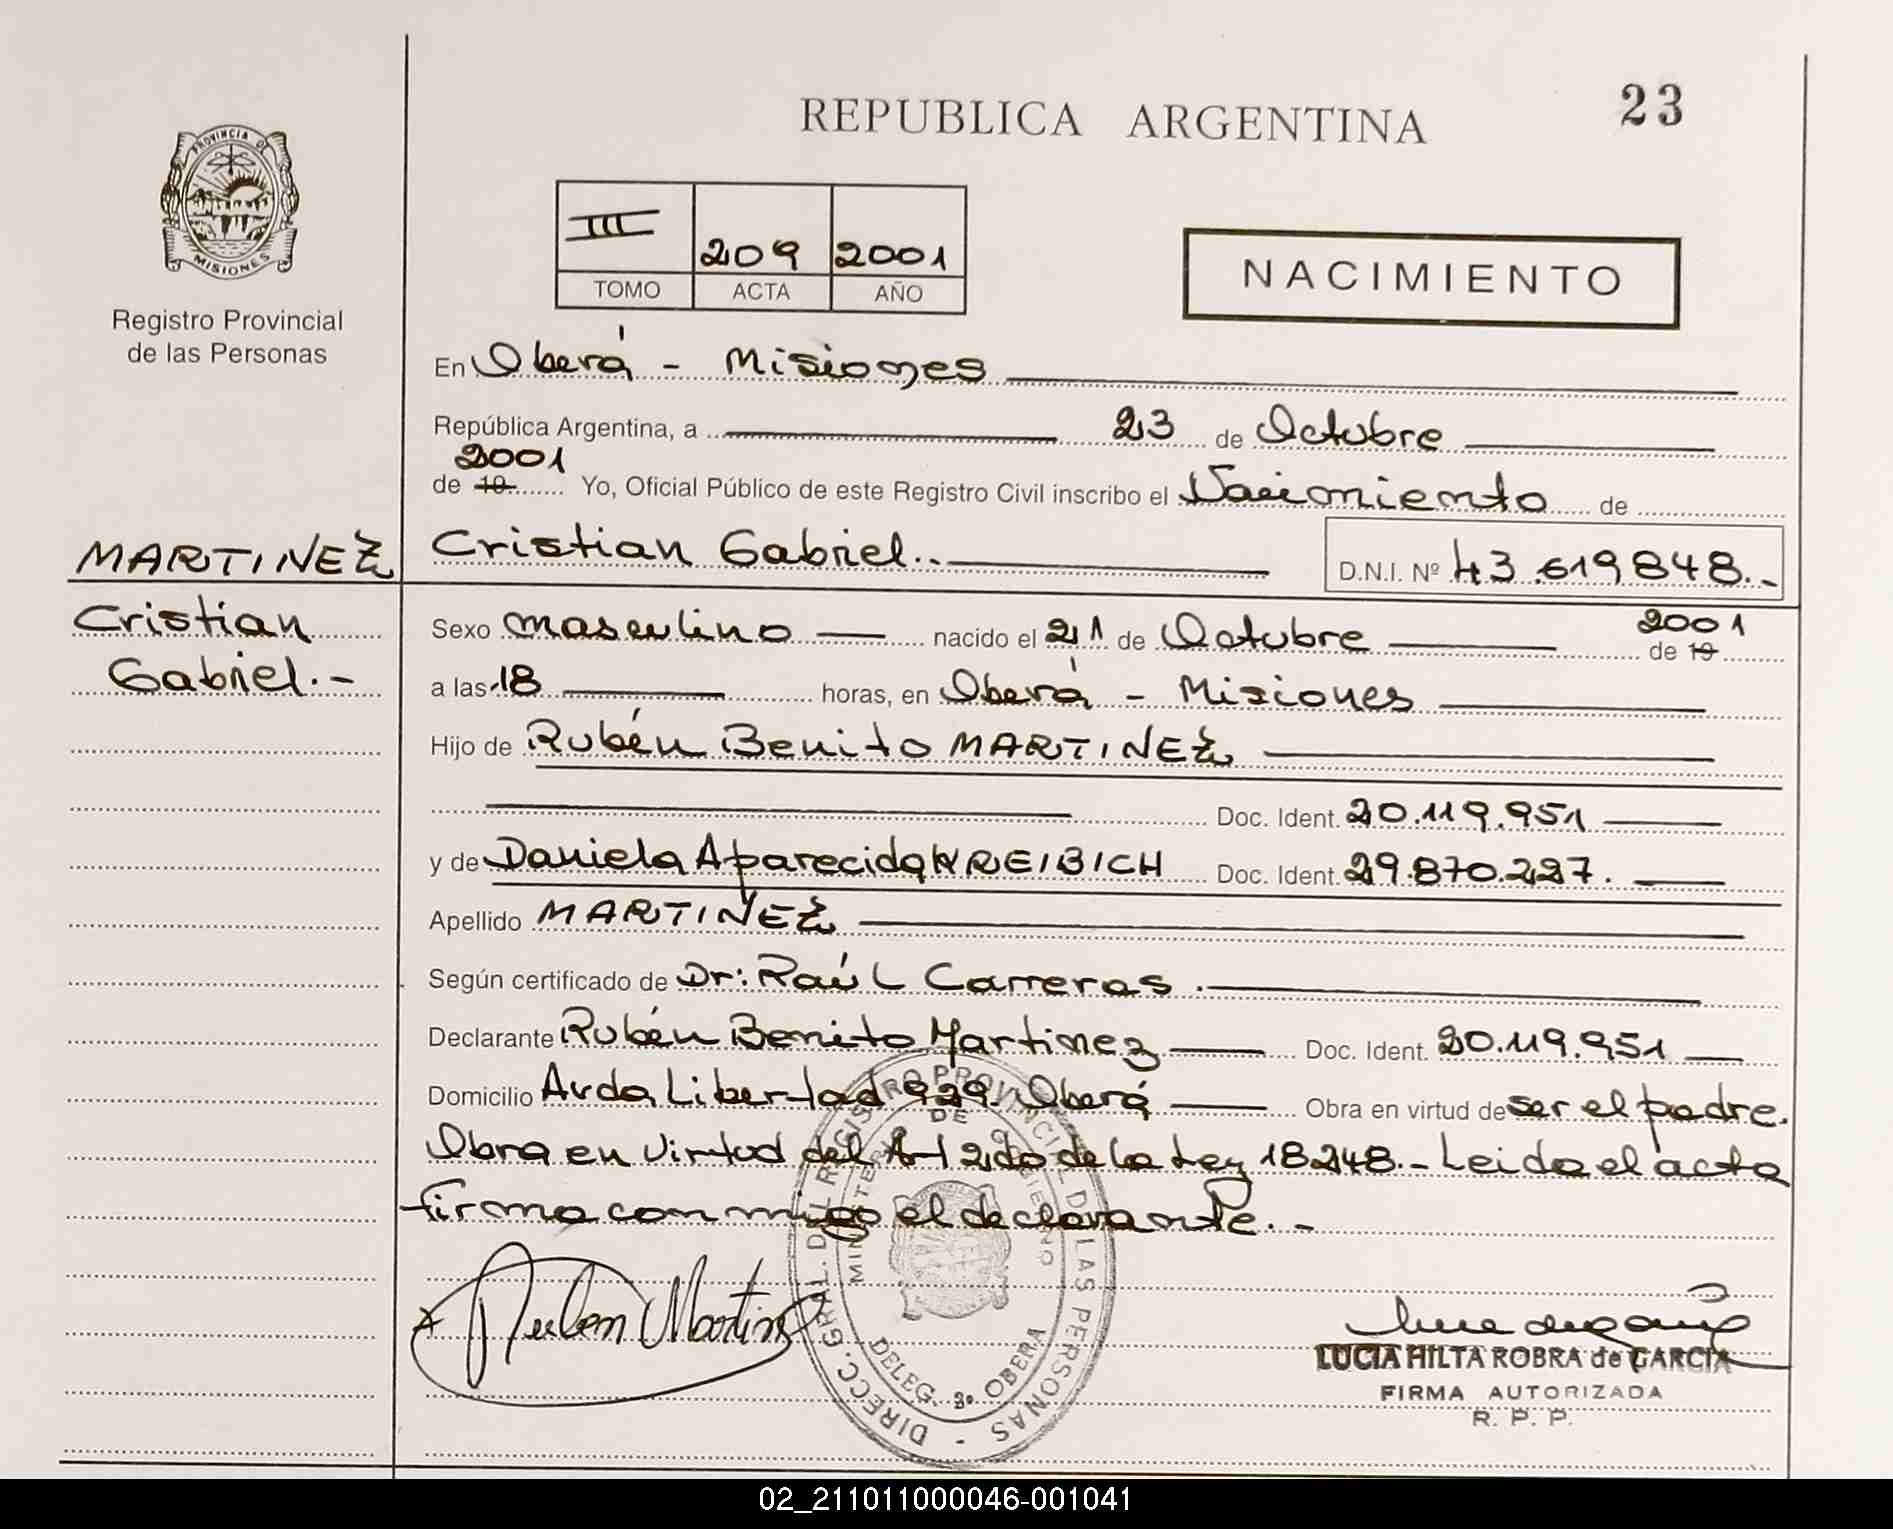 REPUBLICA ARGENTINA
23
PROVINCIA DE
MISIONES
Registro Provincial
de las Personas
III 209 2001
TOMO ACTA AÑO
NACIMIENTO
En Oberá - Misiones
República Argentina, a 23 de Octubre
2001
de 19 Yo, Oficial Público de este Registro Civil inscribo el Nacimiento de
MARTINEZ Cristian Gabriel.. D.N.I. Nº 43.619848.-
Cristian
Gabriel.-
Sexo masculino nacido el 21 de Octubre 2001
de 19
a las 18 horas, en Oberá - Misiones
Hijo de Rubén Benito MARTINEZ
Doc. Ident. 20.119.951
y de Daniela Aparecida KREIBICH Doc. Ident. 29.870.227.
Apellido MARTINEZ
Según certificado de Dr: Raúl Carreras.
Declarante Rubén Benito Martinez Doc. Ident. 20.119.951
Domicilio Avda Libertad 929. Oberá Obra en virtud de ser el padre.
Obra en virtud del At 2do de la Ley 18248.- Leida el acta
firma con migo el declarante.-
Ruben Martinez
DIRECC. GRAL. DEL REGISTRO PROVINCIAL DE LAS PERSONAS
MINISTERIO DE GOBIERNO
DELEG. 2º OBERA
LUCIA HILTA ROBRA de GARCIA
FIRMA AUTORIZADA
R. P. P.
02_211011000046-001041